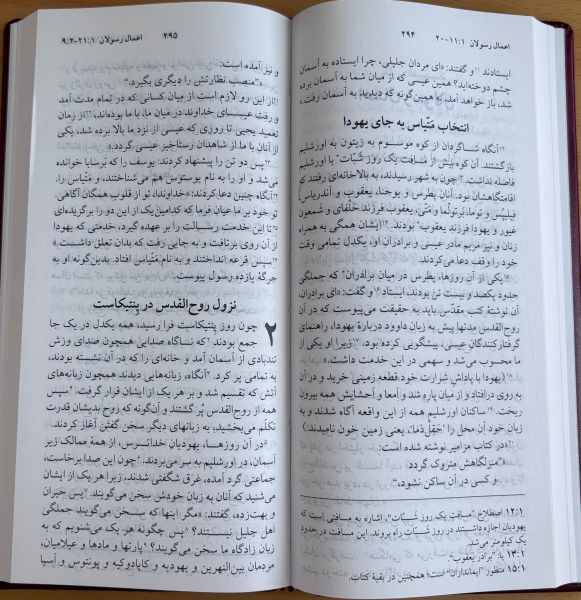 اعمال رسولان ۱:‏۱۱-۲۰
۲۹۴
ایستادند ۱۱و گفتند: «ای مردان جلیلی، چرا ایستاده به آسمان
چشم دوخته‌اید؟ همین عیسی که از میان شما به آسمان برده
شد، باز خواهد آمد به همین‌گونه که دیدید به آسمان رفت.»
انتخاب مَتّیاس به جای یهودا
۱۲آنگاه شاگردان از کوه موسوم به زیتون به اورشلیم
بازگشتند. آن کوه بیش از مسافت یک روز شَبّات* با اورشلیم
فاصله نداشت. ۱۳چون به شهر رسیدند، به بالاخانه‌ای رفتند که
اقامتگاهشان بود. آنان پطرس و یوحنا، یعقوب و آندریاس،
فیلیپُس و توما، بَرتولْما و مَتّی، یعقوب فرزند حَلْفای و شَمعون
غیور و یهودا فرزند یعقوب* بودند. ۱۴ایشان همگی به همراه
زنان و نیز مریم مادر عیسی و برادران او، یکدل تمامی وقت
خود را وقف دعا می‌کردند.
۱۵یکی از آن روزها، پطرس در میان برادران* که جملگی
حدود یکصد و بیست تن بودند، ایستاد ۱۶و گفت: «ای برادران،
آن نوشتهٔ کتب مقدّس باید به حقیقت می‌پیوست که در آن
روح‌القدس مدتها پیش به زبان داوود دربارهٔ یهودا، راهنمای
گرفتارکنندگان عیسی، پیشگویی کرده بود؛ ۱۷زیرا او یکی از
ما محسوب می‌شد و سهمی در این خدمت داشت.»
۱۸(یهودا با پاداش شرارت خود قطعه زمینی خرید و در آن
به روی درافتاد و از میان پاره شد و امعا و احشایش همه بیرون
ریخت. ۱۹ساکنان اورشلیم همه از این واقعه آگاه شدند و به
زبان خود آن محل را 'حَقِل‌دَما'، یعنی زمین خون نامیدند.)
۲۰«در کتاب مزامیر نوشته شده است:
«'منزلگاهش متروک گردد
و کسی در آن ساکن نشود،'
۱۲:۱ اصطلاح ”مسافت یک روز شَبّات“، اشاره به مسافتی است که
یهودیان اجازه داشتند در روز شَبّات راه بروند. این مسافت در حدود
یک کیلومتر می‌شد.
۱۳:۱ یا: ”برادر یعقوب“.
۱۵:۱ منظور ”ایمانداران“ است؛ همچنین در بقیهٔ کتاب.
۲۹۵
اعمال رسولان ۱:‏۲۱-۲:‏۹
و نیز آمده است:
«'منصب نظارتش را دیگری بگیرد.'
۲۱از این رو لازم است از میان کسانی که در تمام مدت آمد
و رفت عیسای خداوند در میان ما، با ما بوده‌اند، ۲۲از زمان
تعمید یحیی تا روزی که عیسی از نزد ما بالا برده شد، یکی
از آنان با ما از شاهدان رستاخیز عیسی گردد.»
۲۳پس دو تن را پیشنهاد کردند: یوسف را که بَرسابا خوانده
می‌شد و او را به نام یوستوس هم می‌شناختند، و مَتّیاس را.
۲۴آنگاه چنین دعا کردند: «خداوندا، تو از قلوب همگان آگاهی.
تو خود بر ما عیان فرما که کدامین یک از این دو را برگزیده‌ای
۲۵تا این خدمت رسالت را بر عهده گیرد، خدمتی که یهودا
از آن روی برتافت و به جایی رفت که بدان تعلق داشت.»
۲۶سپس قرعه انداختند و به نام مَتّیاس افتاد. بدین‌گونه او به
جرگهٔ یازده رسول پیوست.
نزول روح‌القدس در پِنتیکاست
۲ چون روز پِنتیکاست فرا رسید، همه یکدل در یک جا
جمع بودند ۲که ناگاه صدایی همچون صدای وزش
تندبادی از آسمان آمد و خانه‌ای را که در آن نشسته بودند،
به تمامی پر کرد. ۳آنگاه، زبانه‌هایی دیدند همچون زبانه‌های
آتش که تقسیم شد و بر هر یک از ایشان قرار گرفت. ۴سپس
همه از روح‌القدس پُر گشتند و آن‌گونه که روح بدیشان قدرت
تکلّم می‌بخشید، به زبانهای دیگر سخن گفتن آغاز کردند.
۵در آن روزها، یهودیان خداترس، از همهٔ ممالک زیر
آسمان، در اورشلیم به سر می‌بردند. ۶چون این صدا برخاست،
جماعتی گرد آمده، غرق شگفتی شدند، زیرا هر یک از ایشان
می‌شنید که آنان به زبان خودش سخن می‌گویند. ۷پس حیران
و بهت‌زده، گفتند: «مگر اینها که سخن می‌گویند جملگی
اهل جلیل نیستند؟ ۸پس چگونه هر یک می‌شنویم که به
زبان زادگاه ما سخن می‌گویند؟ ۹پارتها و مادها و عیلامیان،
مردمان بین‌النهرین و یهودیه و کاپادوکیه و پونتوس و آسیا